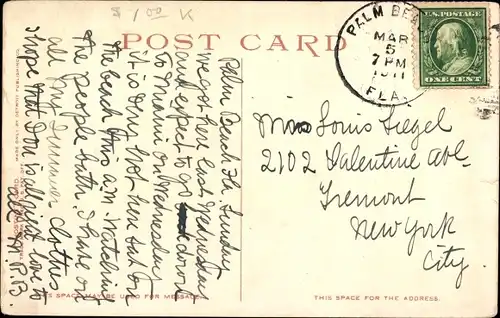 $ 1.00 K
POST CARD
PALM BEA
MAR
5
7 PM
1911
FLA.
U.S. POSTAGE
ONE CENT
Palm Beach Fla Sunday
we got here last Wednesday
and expect to go down
to Miami on Wednesday
it is very hot here sat on
the beach this a.m. watching
the people bath. I have on
all my Summer clothes
I hope that Don is all right love to
all H.P.B.
Miss Louis Siegel
2102 Valentine Ave.
Tremont
New York
City.
THIS SPACE MAY BE USED FOR MESSAGE.
THIS SPACE IS FOR THE ADDRESS.